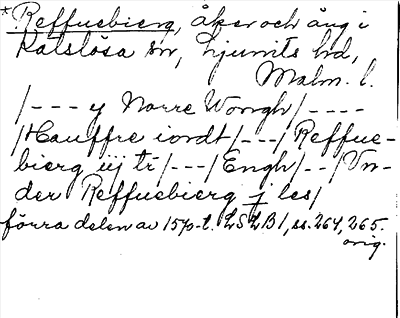 *Reffuebierg, åker och äng i
Katslösa sn, Ljunits hd,
Malm. l.
/--- y Norre Wongh/----
/Hauffre iordt/---/Reffue-
bierg iij tr/---/Engh/--/Vn-
der Reffuebierg j les/
förra delen av 1570-t. LSLB1, ss. 264, 265.
orig.